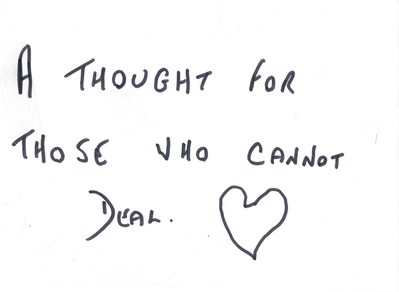 A THOUGHT FOR
THOSE WHO CANNOT
DEAL.